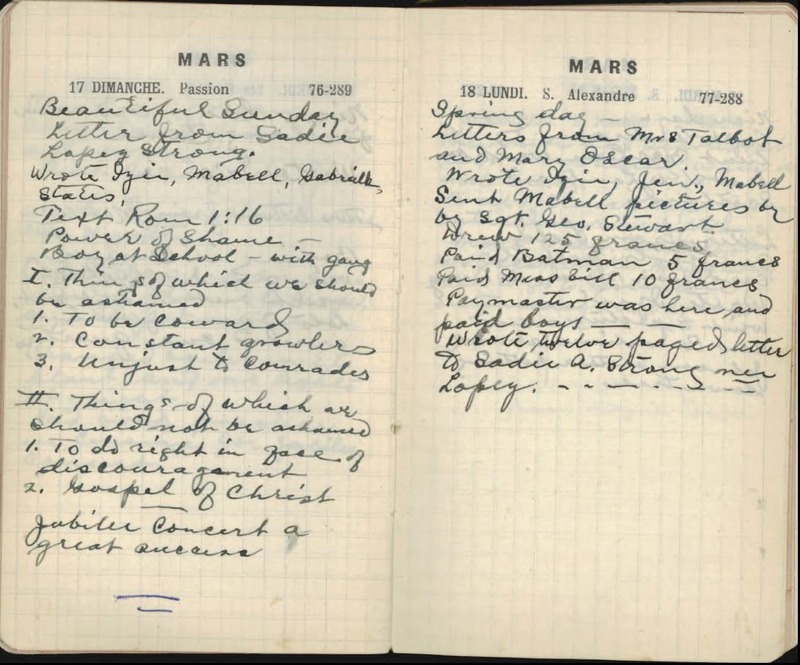 MARS
17 DIMANCHE. Passion 76-289
Beautiful Sunday
Letter from Sadie
Lopey Strong.
Wrote Izie, Mabell, Gabrielle,
States,
Text Rom 1:16
Power of Shame —
Boy at School - with gang
I. Things of which we should
be ashamed
1. To be coward
2. Constant growlers
3. Unjust to Comrades
II. Things of which we
should not be ashamed
1. To do right in face of
discouragement
2. Gospel of Christ
Jubilee Concert a
great success
MARS
18 LUNDI. S. Alexandre 77-288
Spring day —
Letters from Mrs Talbot
and Mary Oscar.
Wrote Izie, Jen., Mabell
Sent Mabell pictures by
by Sgt. Geo. Stewart.
Drew 125 francs
Paid Batman 5 francs
Paid Mess bill 10 francs
Paymaster was here and
paid boys — —
Wrote twelve paged letter
to Sadie A. Strong nee
Lopey. - - - - - -